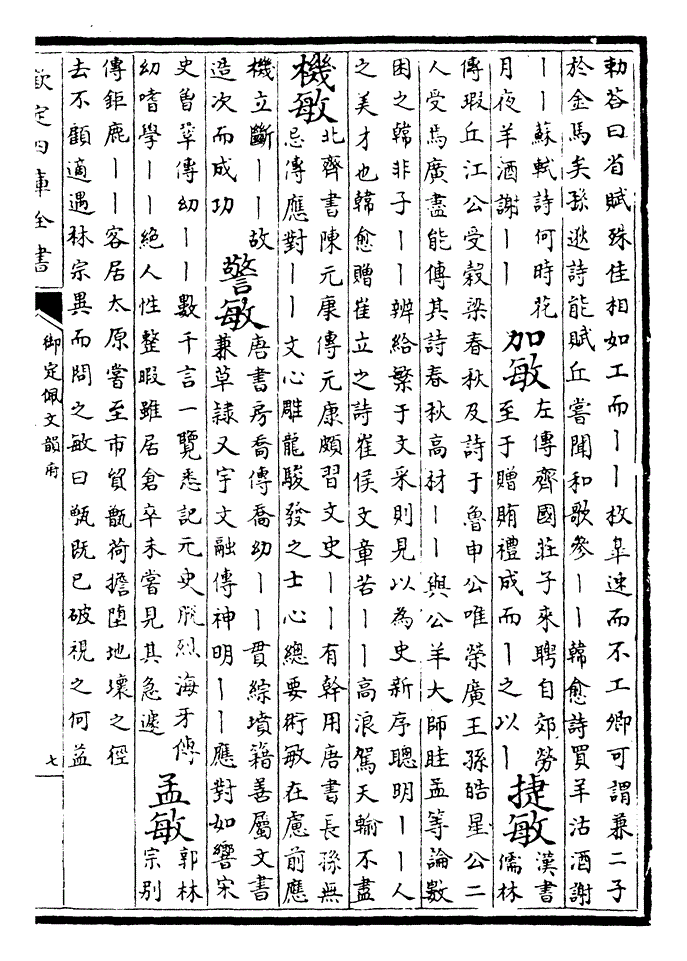 勅荅曰省賦殊佳相如工而丨丨枚臯速而不工卿可謂兼二子
於金馬矣孫逖詩能賦丘嘗聞和歌參丨丨韓愈詩買羊沽酒謝
丨丨蘇軾詩何時花
月夜羊酒謝丨丨
加敏
左傳齊國莊子來聘自郊勞
至于贈賄禮成而丨之以丨
捷敏
漢書
儒林
傳瑕丘江公受榖梁春秋及詩于魯申公唯榮廣王孫皓星公二
人受焉廣盡能傳其詩春秋高材丨丨與公羊大師眭孟等論數
困之韓非子丨丨辨給繁于文采則見以為史新序聰明丨丨人
之美才也韓愈贈崔立之詩崔侯文章苦丨丨高浪駕天輸不盡
機敏
北齊書陳元康傳元康頗習文史丨丨有幹用唐書長孫無
忌傳應對丨丨文心雕龍駿發之士心總要術敏在慮前應
機立斷丨丨故
造次而成功
警敏
唐書房喬傳喬幼丨丨貫綜墳籍善屬文書
兼草隷又宇文融傳神明丨丨應對如響宋
史曾鞏傳幼丨丨數千言一覽悉記元史脫烈海牙傳
幼嗜學丨丨絶人性整暇雖居倉卒未嘗見其急遽
孟敏
郭林
宗别
傳鉅鹿丨丨客居太原嘗至市貿甑荷擔墮地壞之徑
去不顧適遇林宗異而問之敏曰甑既已破視之何益
欽定四庫全書
御定佩文韻府
七